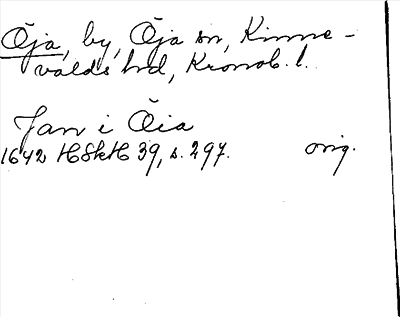 Öja, by, Öja sn, Kinne-
valds hd, Kronob. l.
Jan i Öia
1642 HSkH 39, s. 297. orig.